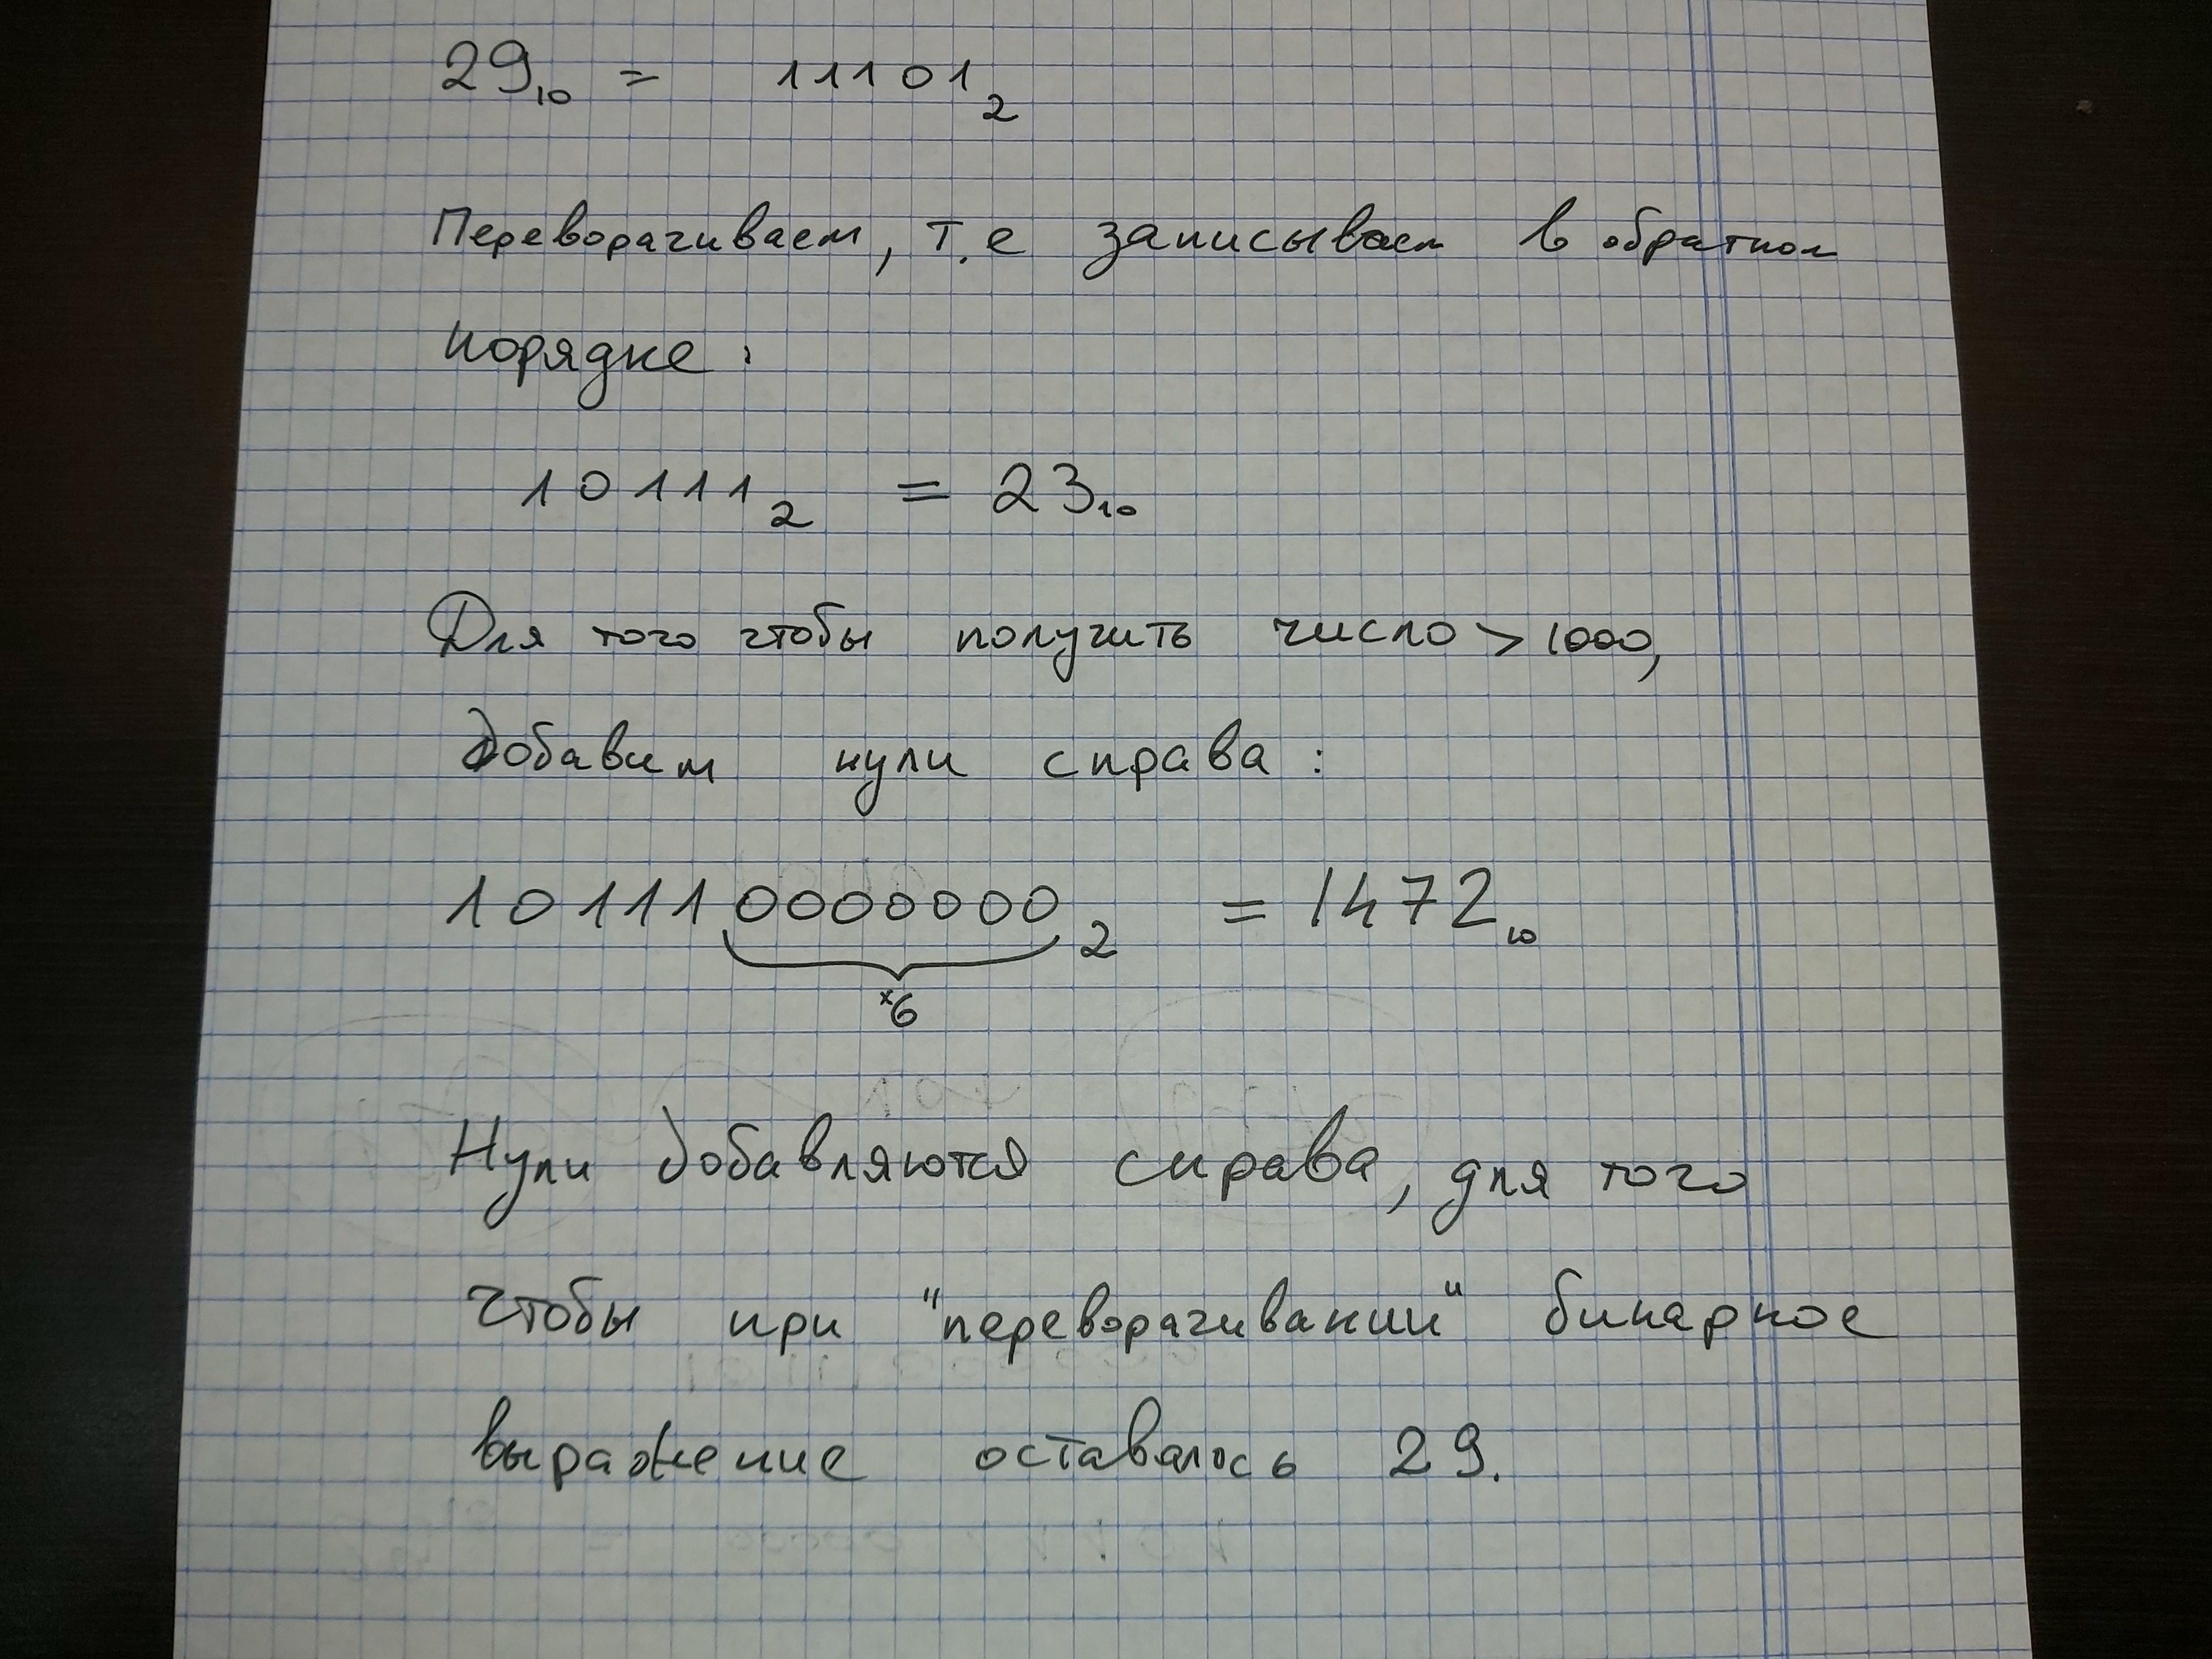 29₁₀ = 11101₂
Переворачиваем, т.е записываем в обратном
порядке:
10111₂ = 23₁₀
Для того чтобы получить число > 1000,
добавим нули справа:
101110000000₂ = 1472₁₀
x6
Нули добавляются справа, для того
чтобы при "переворачивании" бинарное
выражение оставалось 29.